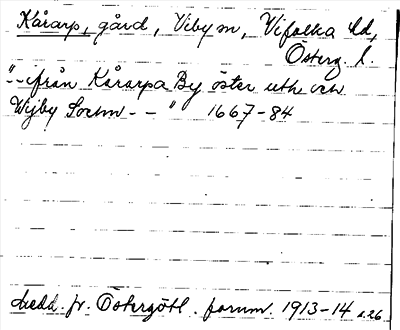 Kårarp, gård, Viby sn, Vifolka hd,
Österg. l.
"-- ifrån Kårarpa By öster uth och
Wijby Sochn -- " 1667-84
Medd. fr. Östergötl. fornm. 1913-14 s. 26